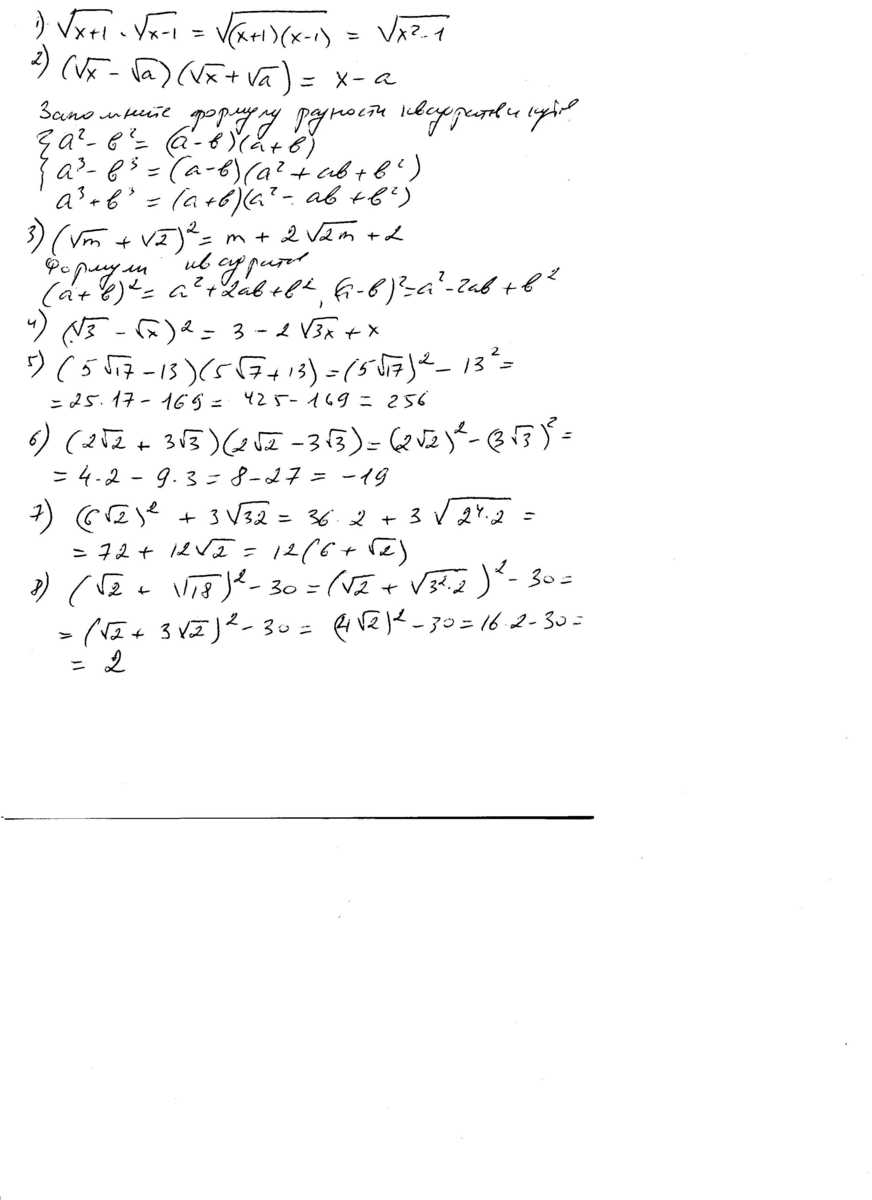 1) √(x+1) · √(x-1) = √((x+1)(x-1)) = √(x²-1)
2) (√x - √a)(√x + √a) = x - a
Запомните формулу разности квадратов и кубов
{ a² - в² = (a - в)(a + в)
a³ - в³ = (a-в)(a² + ав + в²)
a³ + в³ = (a+в)(a² - ав + в²)
3) (√m + √2)² = m + 2√(2m) + 2
Формули квадратов
(a + в)² = a² + 2ав + в², (a - в)² = a² - 2ав + в²
4) (√3 - √x)² = 3 - 2√(3x) + x
5) (5√17 - 13)(5√7 + 13) = (5√17)² - 13² =
= 25·17 - 169 = 425 - 169 = 256
6) (2√2 + 3√3)(2√2 - 3√3) = (2√2)² - (3√3)² =
= 4·2 - 9·3 = 8 - 27 = -19
7) (6√2)² + 3√32 = 36·2 + 3√(2⁴·2) =
= 72 + 12√2 = 12(6 + √2)
8) (√2 + √18)² - 30 = (√2 + √(3²·2))² - 30 =
= (√2 + 3√2)² - 30 = (4√2)² - 30 = 16·2 - 30 =
= 2